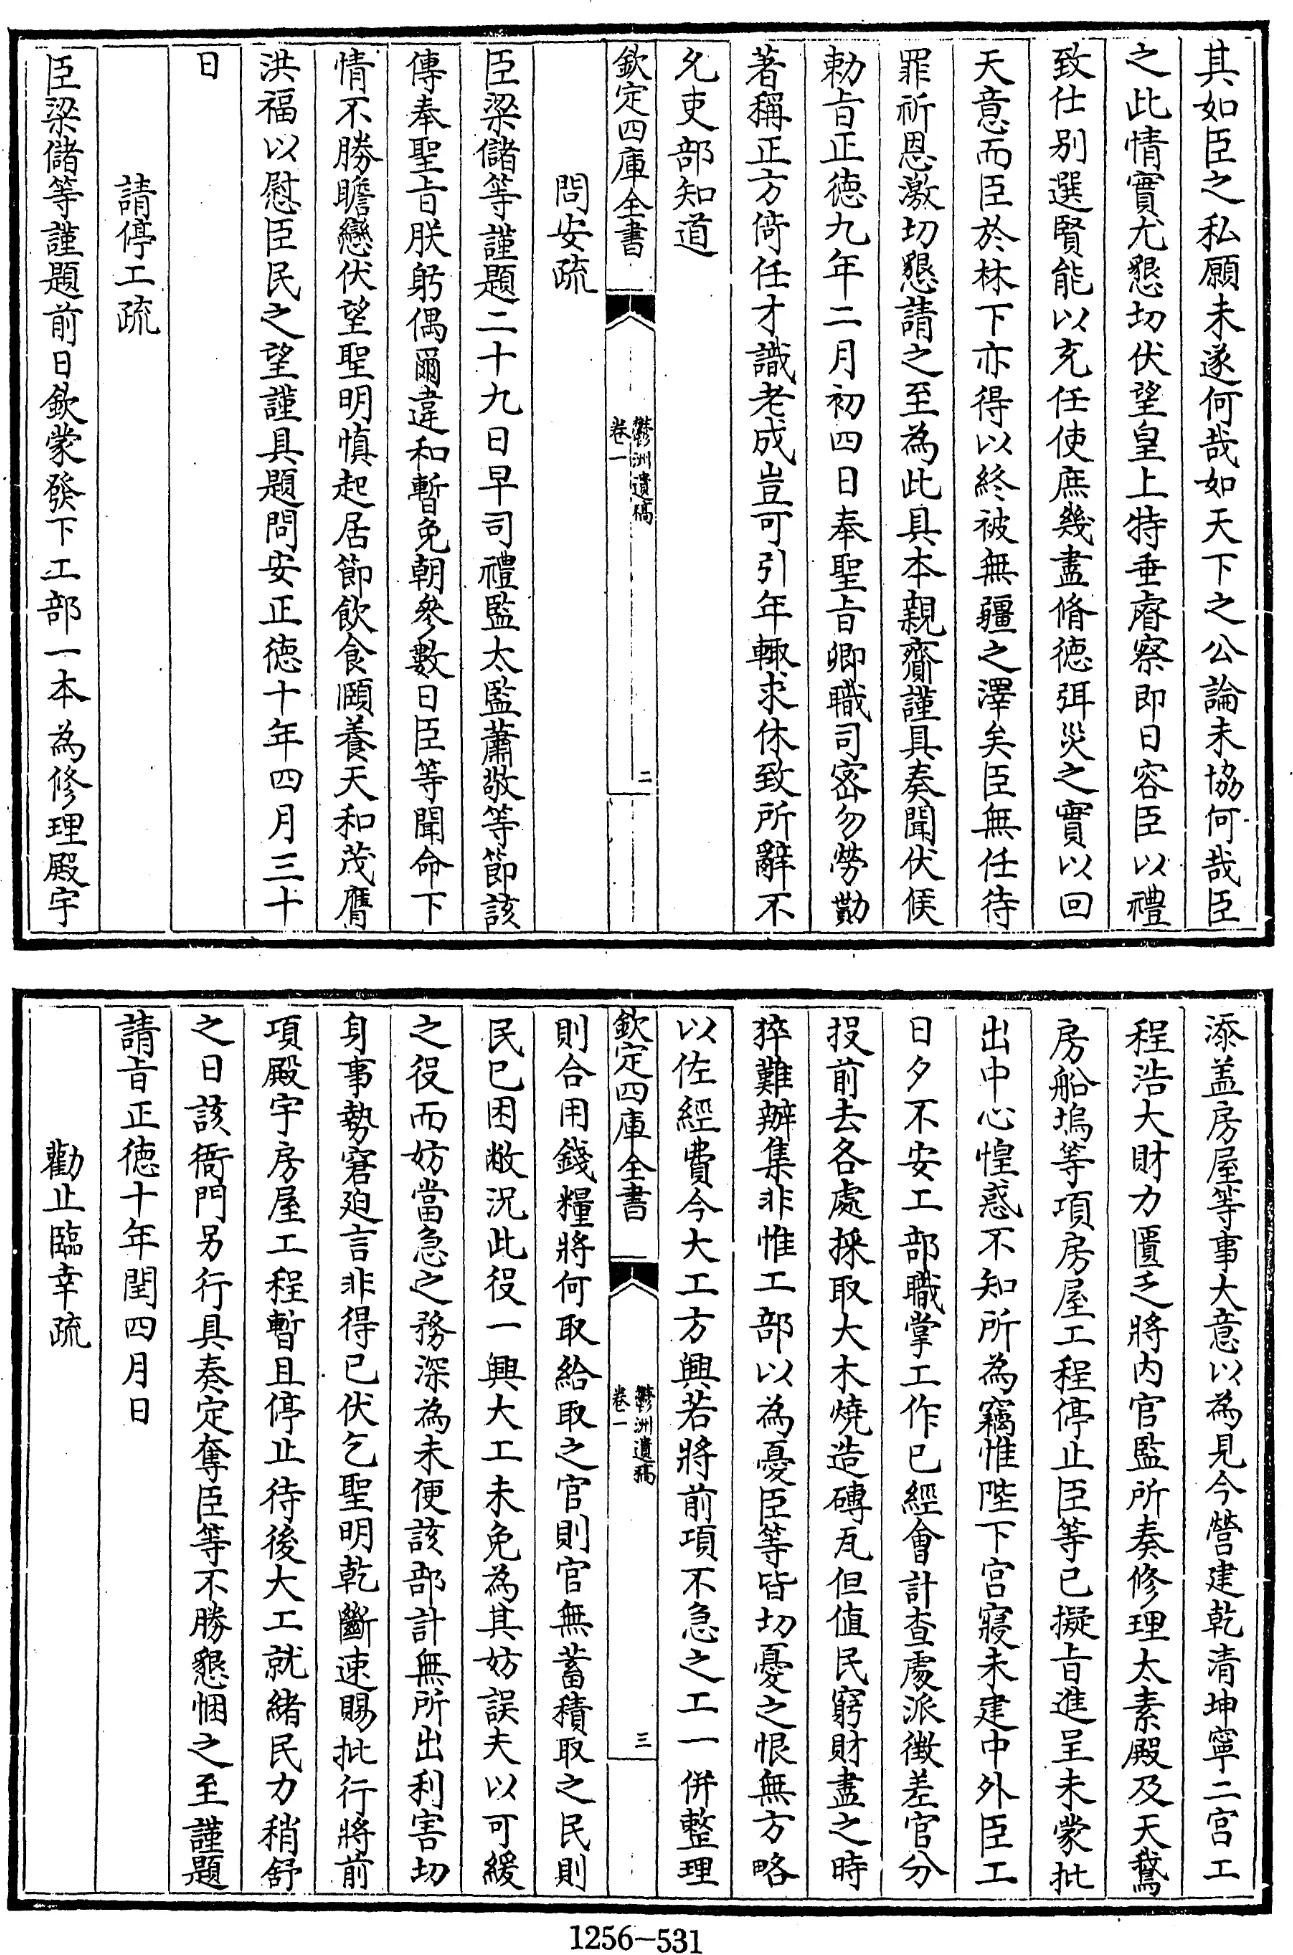 其如臣之私願未遂何哉如天下之公論未協何哉臣
之此情實尤懇切伏望皇上特垂睿察即日容臣以禮
致仕别選賢能以充任使庶幾盡脩徳弭災之實以回
天意而臣於林下亦得以終被無疆之澤矣臣無任待
罪祈恩激切懇請之至為此具本親齎謹具奏聞伏候
勅旨正徳九年二月初四日奉聖旨卿職司密勿勞勩
著稱正方倚任才識老成豈可引年輒求休致所辭不
允吏部知道
欽定四庫全書
鬱洲遺稿
卷一
二
問安疏
臣梁儲等謹題二十九日早司禮監太監蕭敬等節該
傳奉聖旨朕躬偶爾違和暫免朝參數日臣等聞命下
情不勝瞻戀伏望聖明慎起居節飲食頤養天和茂膺
洪福以慰臣民之望謹具題問安正徳十年四月三十
日
請停工疏
臣梁儲等謹題前日欽蒙發下工部一本為修理殿宇
添盖房屋等事大意以為見今營建乾清坤寧二宫工
程浩大財力匱乏將内官監所奏修理太素殿及天鵞
房船塢等項房屋工程停止臣等已擬旨進呈未蒙批
出中心惶惑不知所為竊惟陛下宫寢未建中外臣工
日夕不安工部職掌工作已經會計查處派徴差官分
投前去各處採取大木燒造磚瓦但值民窮財盡之時
猝難辦集非惟工部以為憂臣等皆切憂之恨無方略
以佐經費今大工方興若將前項不急之工一併整理
欽定四庫全書
鬱洲遺稿
卷一
三
則合用錢糧將何取給取之官則官無蓄積取之民則
民已困敝況此役一興大工未免為其妨誤夫以可緩
之役而妨當急之務深為未便該部計無所出利害切
身事勢窘廹言非得已伏乞聖明乾斷速賜批行將前
項殿宇房屋工程暫且停止待後大工就緒民力稍舒
之日該衙門另行具奏定奪臣等不勝懇悃之至謹題
請旨正徳十年閏四月日
勸止臨幸疏
1256—531